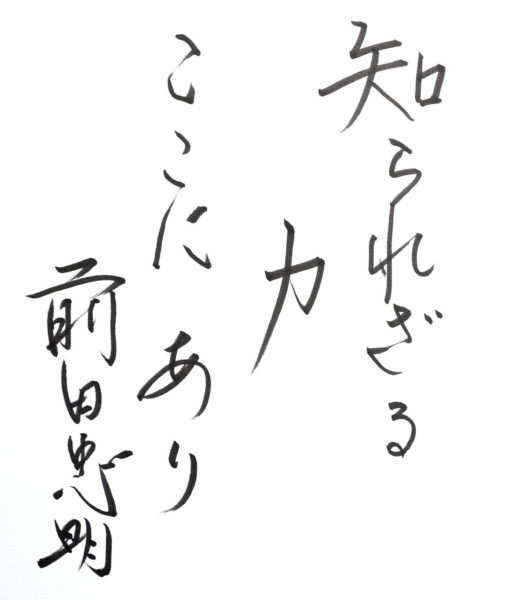 知られざる
力
ここに あり
前田忠明